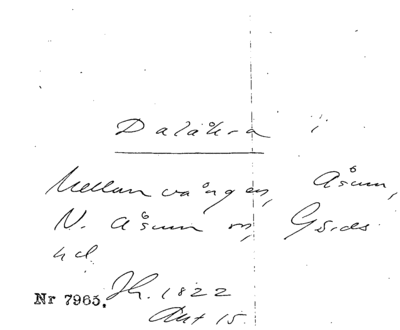 Dalåkra i
Mellanvången, Åsum,
N. Åsum sn, Gärds
hd.
Nr 7965. Jh. 1822
Akt 15.